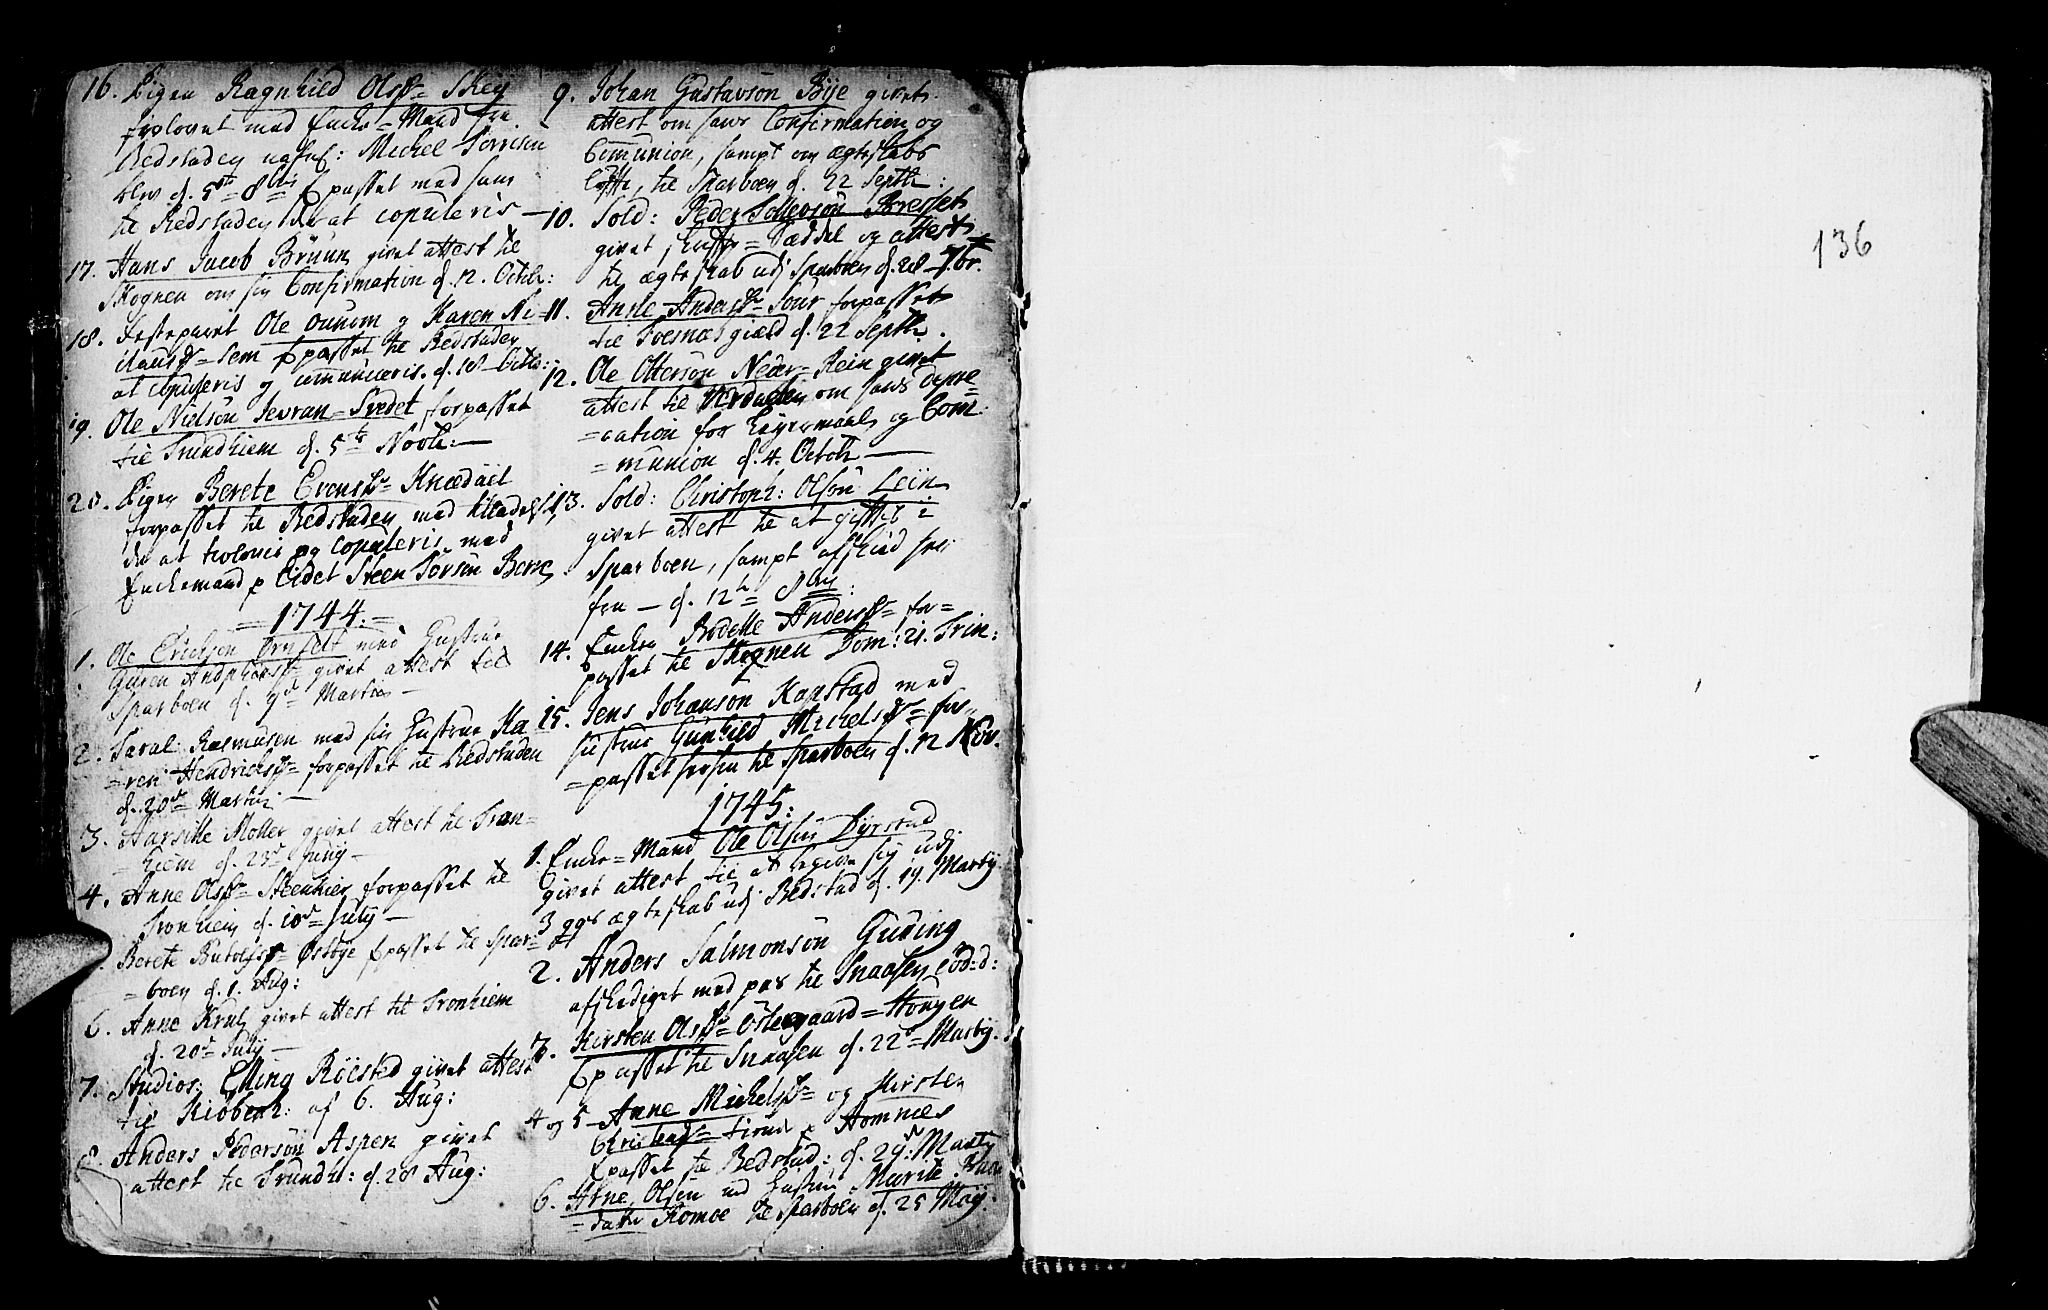 16. Pigen Ragnhild Olsdr= Skey
forlovet med Encke=Mand fra
Bedstaden nafnl: Michel
blev d. 5te 8bris Epasset med ham
til Bedstaden der at copuleris —
17. Hans Jacob Bruun givet attest til
Skognen om sin Confirmation d. 12. Octbr:
18. Festeparret Ole ounom og Karen Ni=
elsd= Sem Epasset til Bedstaden
at copuleris og communiceris. d. 18 Octbr:
19. Ole Nielson Jevran=Svedet forpasset
til Trundhiem d. 5te Novbr: —
20. Pigen Berete Evensdr= Knædael
forpasset til Bedstaden med
der at troloves og copuleris med
Enckemand p Eidet Steen
=1744:=
1. Ole Erichsen med Hustrue
Guren givet attest til
Sparboen d. Martii —
2. Taral: Rasmusen med sin Hustrue Ka
=ren Hendrichsdr= forpasset til Bedstaden
d. 20de Martii —
3. Moller givet attest til Tron=
hiem d. 23de Junij —
4. Anne Olsdr= Steenkier forpasset til
Tronhiem d. 10de July —
Berete Østbye Epasset til Spar=
=boen d. 1. Aug:
6. Anne givet attest til Tronhiem
d. 20de July —
7. Studios: Elling Röested givet attest
til Kiöbenh: af 6. Aug:
8. Anders Pederson Aspen givet
attest til Trundh: d. 28 Aug:
9. Johan Gustavson Bye givet
attest om hans Confirmation og
Communion, sampt om ægteskabs
til Sparboen d. 22 Septbr:
10. Sold: Peder Tollevson
givet Seddel og attest
til ægteskab udj Sparboen d. 28 7.br.
11. Anne Andersdr= Sour forpasset
til d. 22 Septbr.
12. Ole Otterson Neder=Rein givet
attest til Verdalen om hans depre=
=cation for Leyermaal og Com:
=munion d. 4. Octob —
13. Sold: Christoph: Olson Lein
givet attest til at giftes i
Sparboen, sampt afskied her
fra — d. 12te 8bris
14. Encken Bodelle Andersdr= for=
passet til Skognen Dom: 21. Trin:
15. Jens Johanson Kapstad med
Hustrue Gunhild Michelsdr= for=
=passet herfra til Sparboen d. 12 Nov.
1745:
1. Encke=Mand Ole Olsen Dyrstad
givet attest til at begive sig udj
3 ægteskab udj Bedstad d. 19. Martij
2. Anders Salmonson Guring
afskediget med pas til Snaasen eod: d:
3. Kirsten Olsdr= Östergaard=Stougen
Epasset til Snaasen d. 22de Martij.
4 og 5 Anne Michelsdr= og Kirsten
p Homnæs
Epasset til Bedstad: d. 29de Martij
6. Arne Olsen med Hustrue Marite
=datter Komoe til Sparboen d. 25 Maij.
136